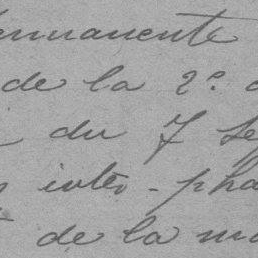 permanente
de la 2e.
du 7 Se
inter-pha
de la ma